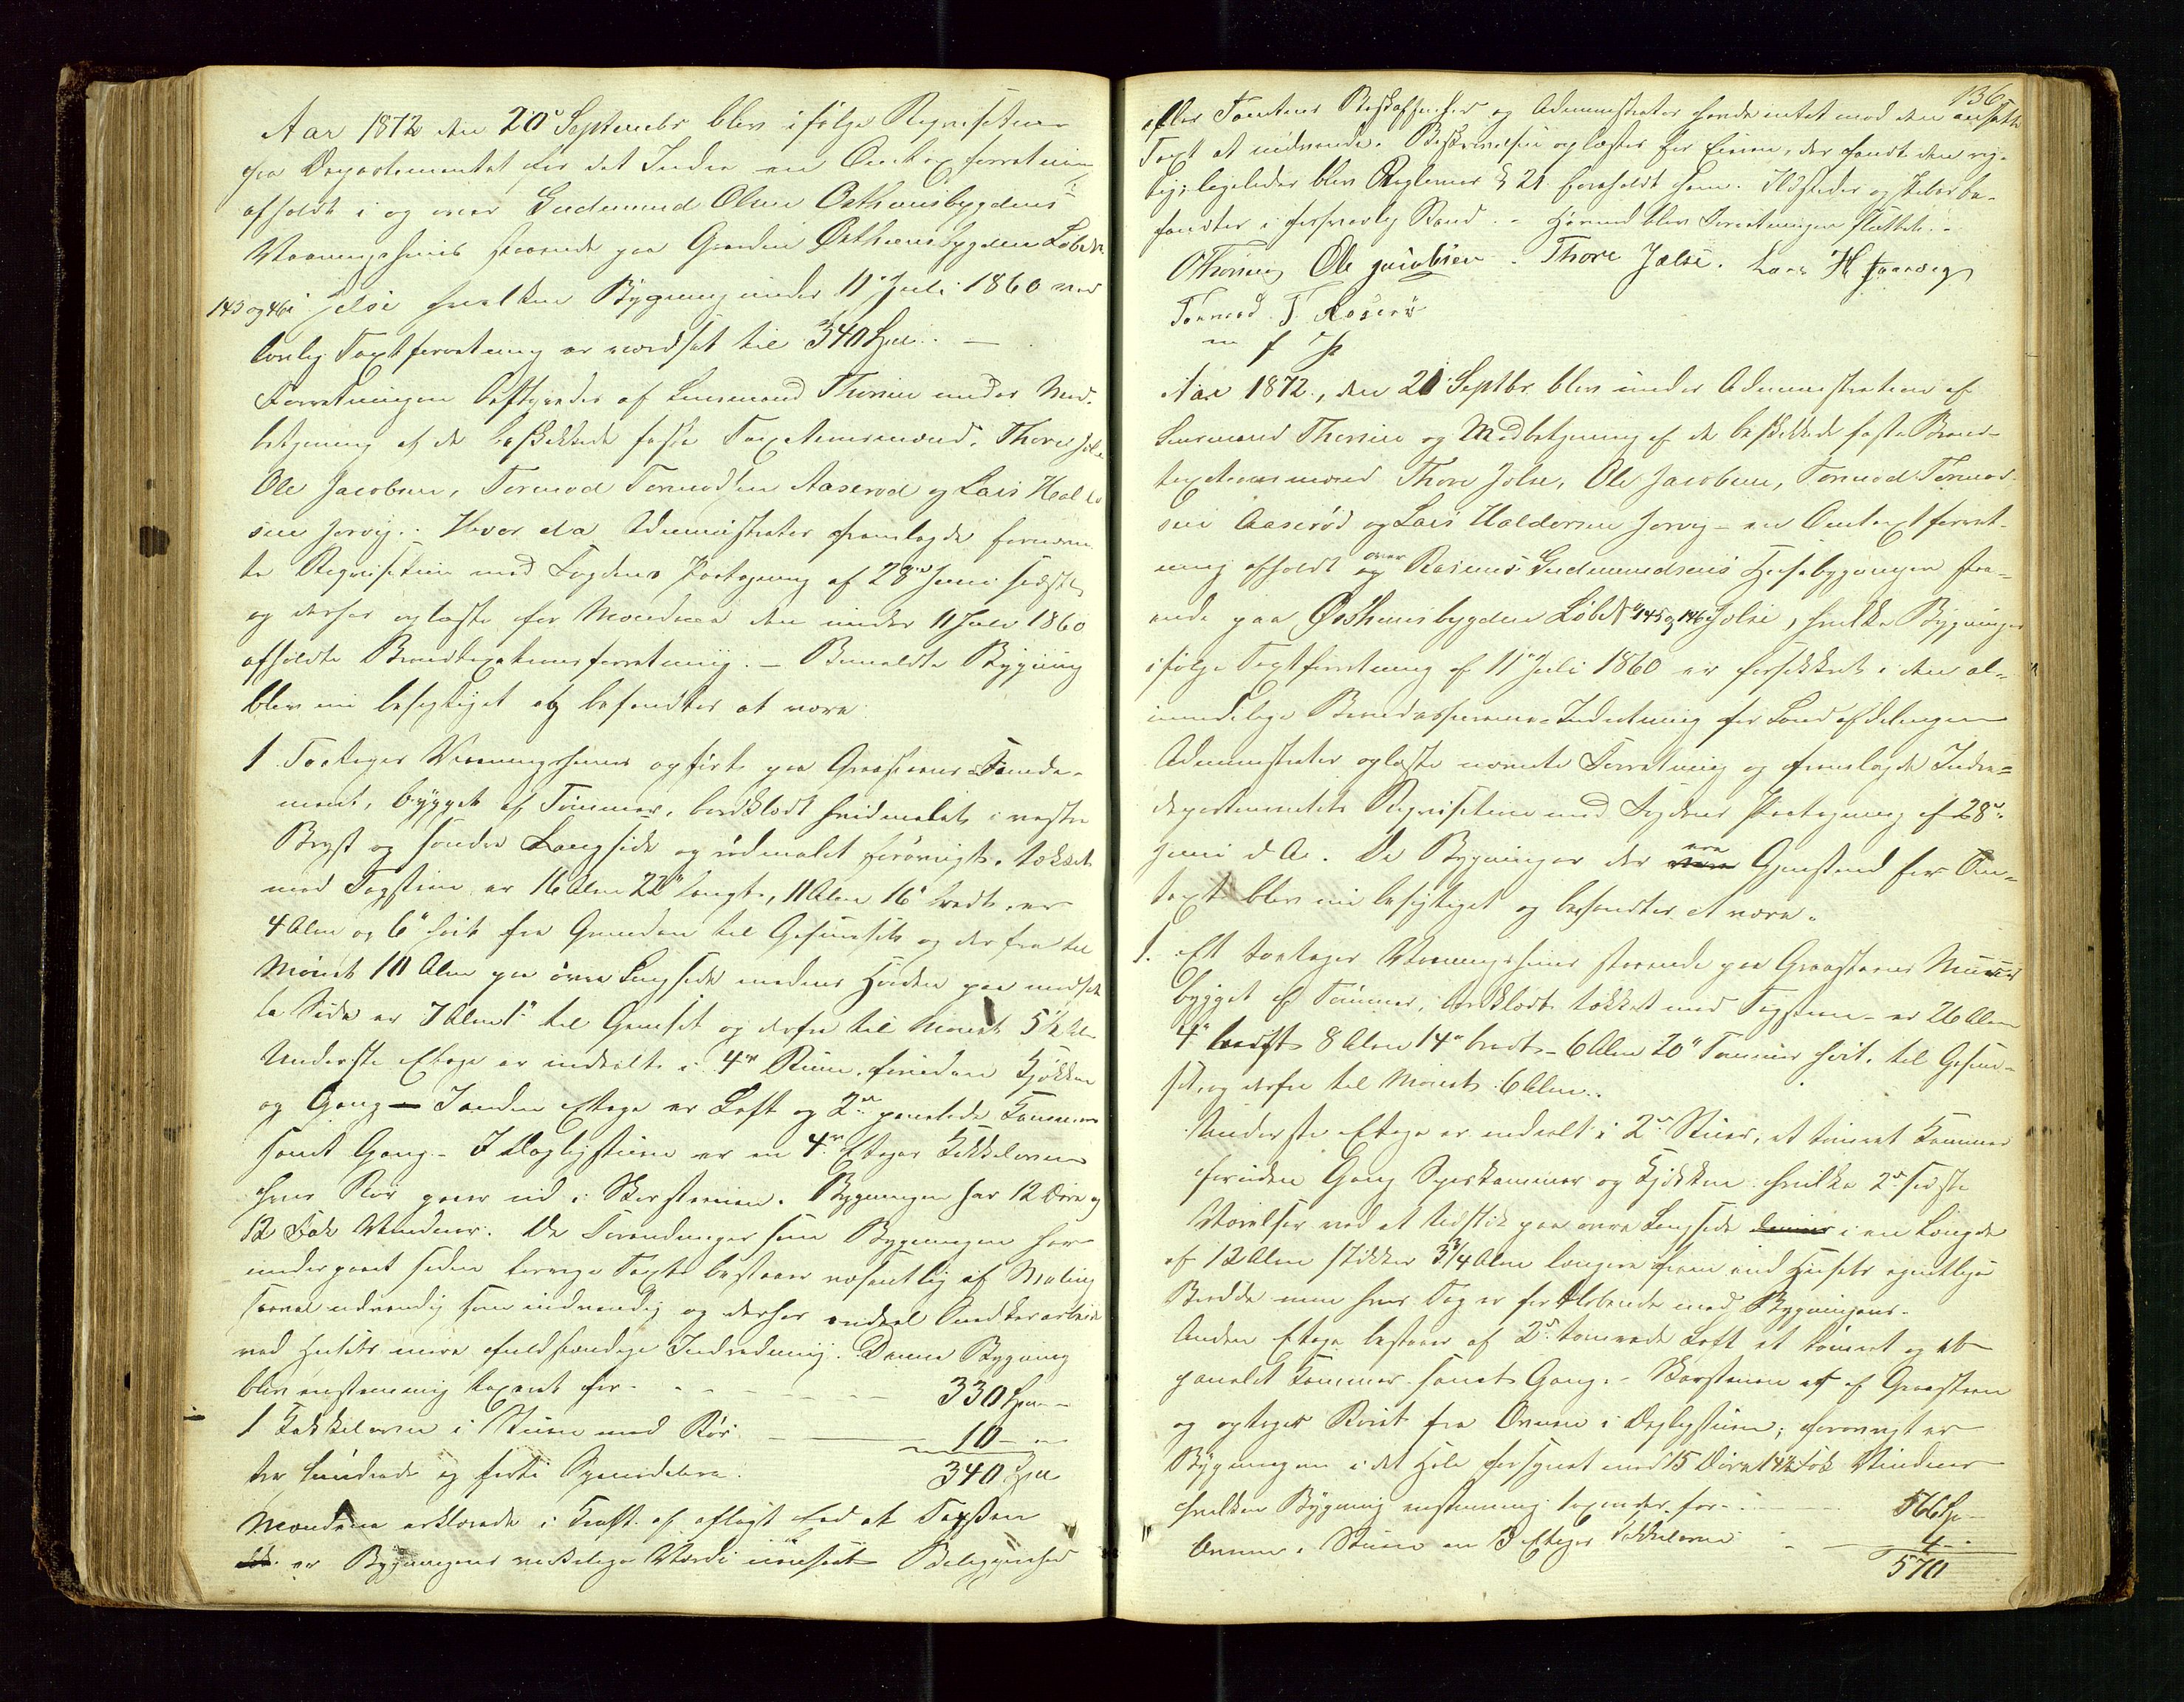 Aar 1872 den 20 Septembr blev ifølge Requisition
fra Departementet for det Indre en Omtaxtforretning
afholdt i og over Gudmund Olsen Østhuusbygdens
Vaaningshuus staaende paa Gaarden Østhuusbygden Løbe No
145 og 46 i Jelse hvilken Bygning under 11 Juli 1860 ved
lovlig Taxtforretning er værdsat til 340 Spd. —
Forretningen bestyredes af Lensmand Thorsen under Med-
betjening af de beskikkede faste Taxationsmænd. Thore Jelse
Ole Jacobsen, Tormod Tormodsen Aaserød og Lars Haldor
sen Jorvig. Hvor da Administrator fremlagde fornævn
te Requisition med Fogdens Paategning af 28de Juni sidstl.
og derhos oplæste for Mændene den under 11 Juli 1860
afholdte Brandtaxationsforretning. — Bemeldte Bygning
blev nu besigtiget og befandtes at være
1 Toetages Vaaningshuus opført paa Graasteens Funda-
ment, bygget af Tømmer, bordklædt hvidmalet i vestre
Bryst og søndre Langside og rødmalet forøvrigt, tækket
med Tagsteen er 16 Alen 22" langt, 11 Alen 16" bredt, er
4 Alen og 6" høit fra Grunden til Gesimset og derfra til
Mønet 10 Alen paa øvre Langside medens Høiden paa modsat
te Side er 7 Alen 1" til Gesimset og derfra til Mønet 5½ Al.
Underste Etage er inddelt i 4re Rum, foruden Kjøkken
og Gang — I anden Etage er Loft og 2de panelede Kammere
samt Gang. — I Dagligstuen er en 4re Etages Kakkelovn
hvis Rør gaar ind i Skorstenen. Bygningen har 12 Døre og
12 Fak Vinduer. De Forandringer som Bygningen har
undergaaet siden forrige Taxt bestaar væsentlig af Maling
saavel udvendig som indvendig og derhos endeel Snedkerarbeide
ved Husets mere fuldstændige Indredning. Denne Bygning
blev enstemmig taxeret for - - - 330 Spd —
1 Kakkelovn i Stuen med Rør — 10 - —
tre hundrede og forti Speciedaler. 340 Spd
Mændene erklærede i Kraft af aflagt Eed at Taxten
er Bygningens virkelige Værdi uanseet Beliggenhed
136.
eller Tomtens Beskaffenhed og Administrator havde intet mod den ansatte
Taxt at indvende. Beskrivelsen oplæstes for Eieren, der fandt den rig-
tig; ligeledes blev Reglernes § 21 foreholdt ham. Ildsteder og Piber be-
fandtes i forsvarlig Stand. - Hermed blev Forretningen sluttet. -
OThorsen Ole Jacobsen. Thore Jælse. Lars H Jaarvig
Tormod T Aaserø
m f P
Aar 1872, den 21 Septbr. blev under Administration af
Lensmand Thorsen og Medbetjening af de beskikkede faste Brand-
taxationsmænd Thore Jelse, Ole Jacobsen, Tormod Tormod-
sen Aaserød og Lars Haldorsen Jorvig - en Omtaxtforret-
ning afholdt og over Rasmus Gudmundsens Huusbygninger staa-
ende paa Østhuusbygden Løbe No 145 og 146 Jelse, hvilke Bygninger
ifølge Taxtforretning af 11 Juli 1860 er forsikkret i den al-
mindelige Brandassurance-Indretning for Landafdelingen
Administrator oplæste nævnte Forretning og fremlagde Indre-
departementets Requisition med Fogdens Paategning af 28de
Juni d. A. De Bygninger der ere Gjenstand for Om-
taxt blev nu besigtiget og befandtes at være.
1. Et toetages Vaaningshuus staaende paa Graasteens Muur
bygget af Tømmer, bordklædt tækket med Tagsteen - er 26 Alen
4" langt 8 Alen 14" bredt - 6 Alen 20" Tommer høit, til Gesim-
set, og derfra til Mønet 6 Alen.
Underste Etage er inddelt i 2de Stuer, et tømret Kammer
foruden Gang Spiskammer og Kjøkken hvilke 2de sidste
Værelser ved et Udstik paa øvre Langside i en Længde
af 12 Alen stikker 3¾ Alen længere frem end Husets egentlige
Bredde men hvis Tag er fortløbende med Bygningens.
Anden Etage bestaar af 2de tømrede Loft et tømret og et
panelet Kammer samt Gang. - Skorstenen er af Graasteen
og optager Røret fra Ovnen i Dagligstuen; forøvrigt er
Bygningen i det Hele forsynet med 15 Døre 14½ Fak Vinduer
hvilken Bygning enstemmig taxeredes for - - 566 Sp —
Ovnen i Stuen en 3 Etages Kakkelovn - - 4 -
570